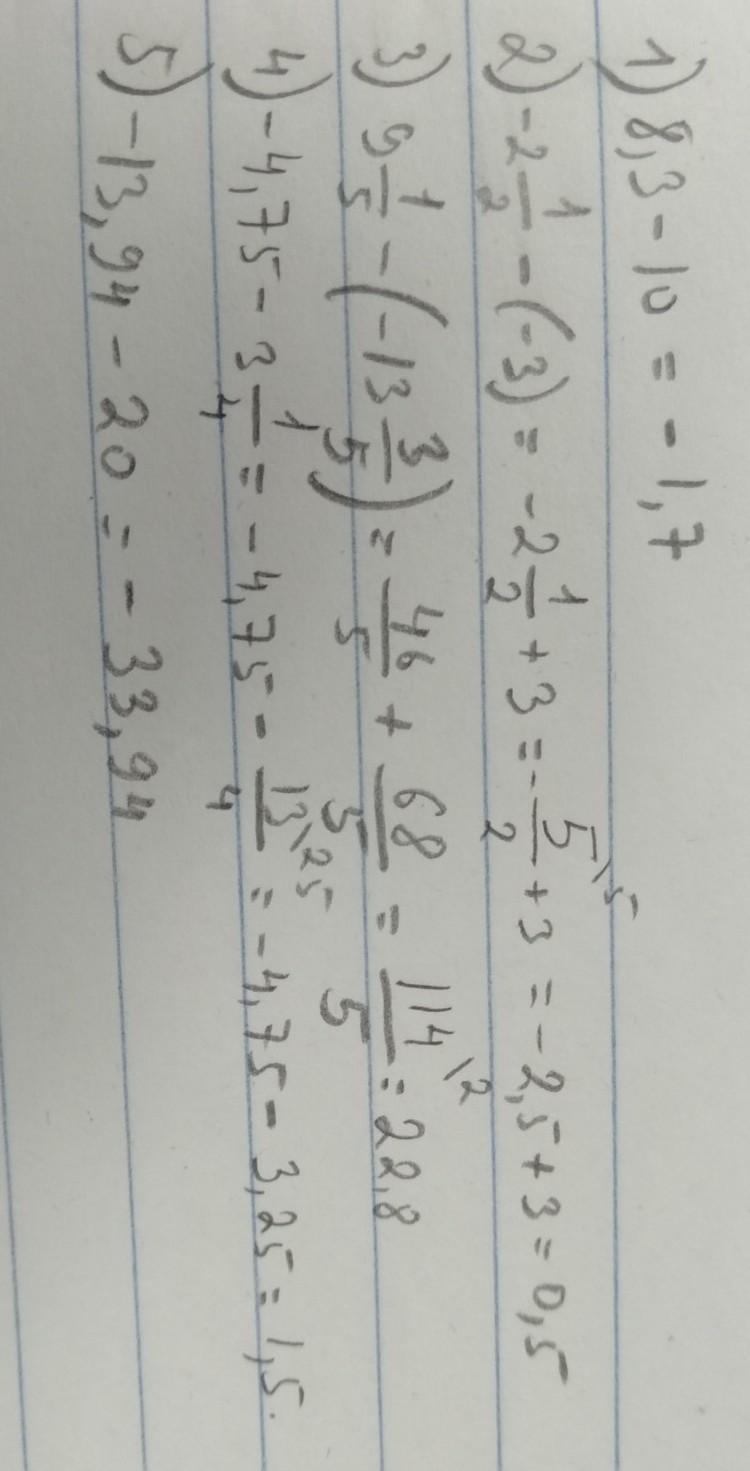 1) 8,3 - 10 = - 1,7
2) -2 1/2 - (-3) = -2 1/2 + 3 = - 5/2 \5 + 3 = -2,5 + 3 = 0,5
3) 9 1/5 - (-13 3/5) = 46/5 + 68/5 = 114/5 \2 = 22,8
4) -4,75 - 3 1/4 = -4,75 - 13/4 \25 = -4,75 - 3,25 = 1,5.
5) -13,94 - 20 = - 33,94